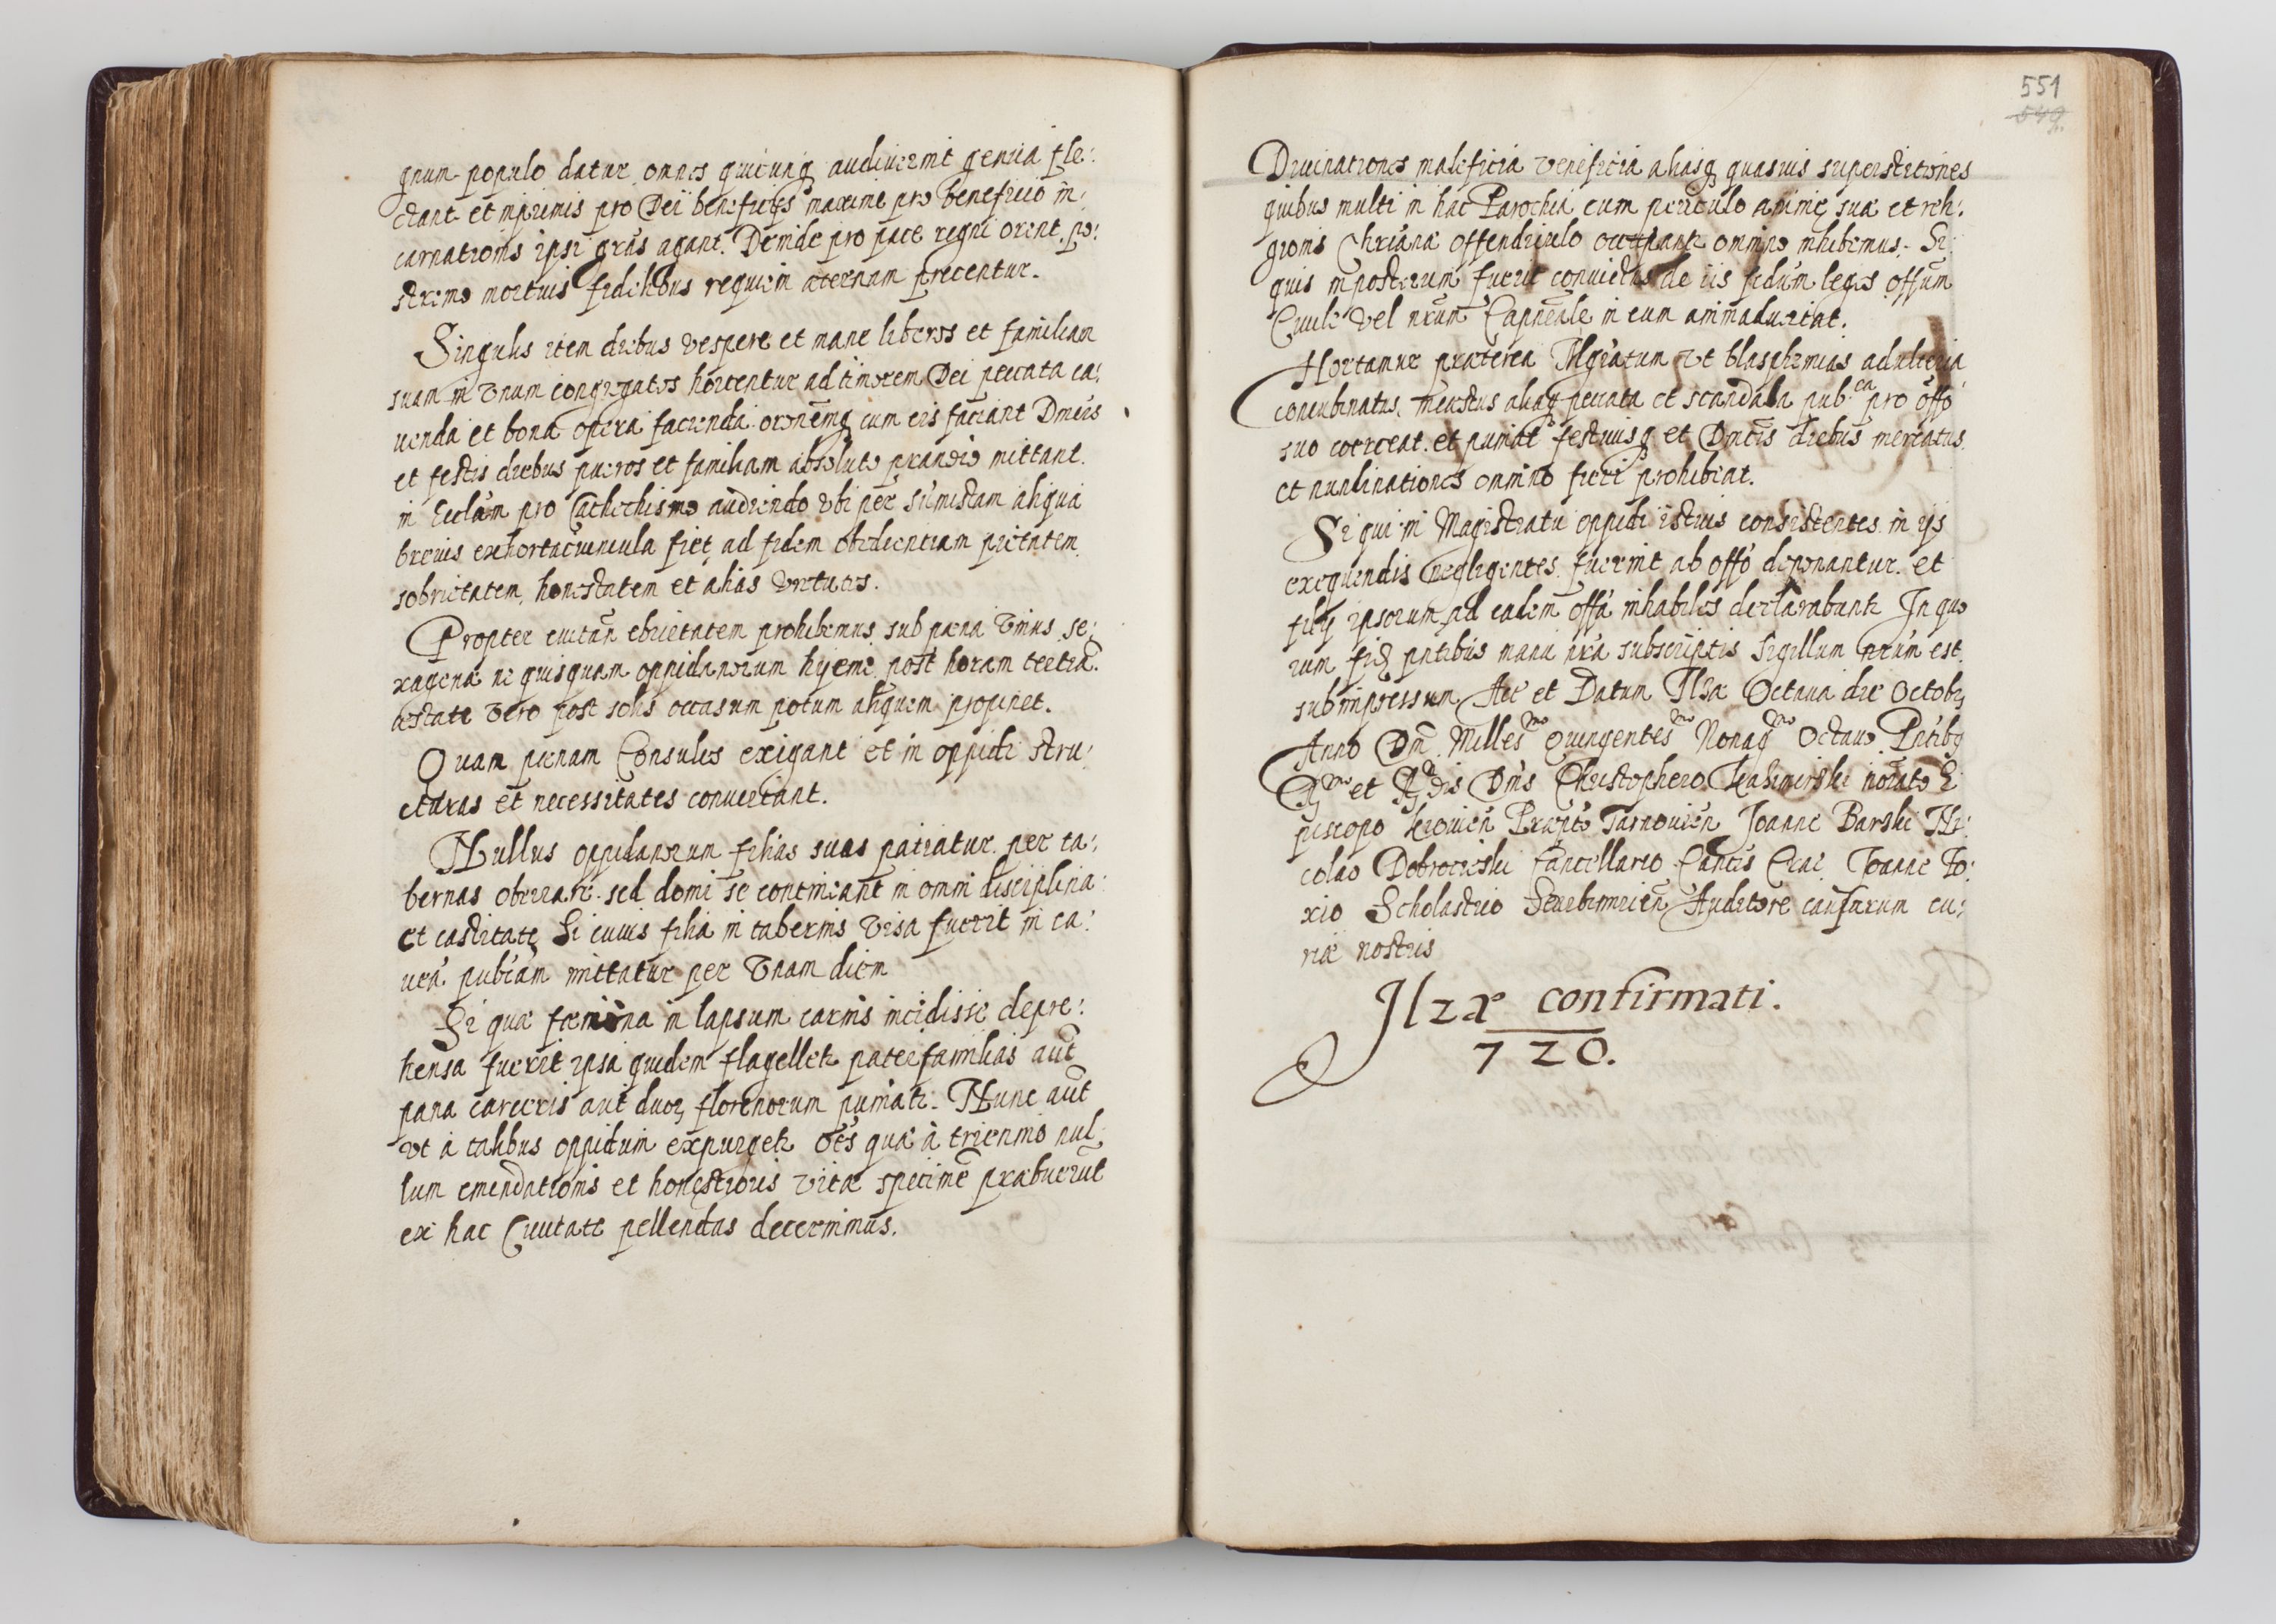 gnum populo datur omnes quicunq audiuerint genua fle:
ctant et inprimis pro Dei beneficijs maxime pro beneficio in:
carnationis ipsi grās agant. Deinde pro pace regni orent. po:
stremo mortuis fidelibus requiem æternam precentur.
Singulis item diebus vespere et mane liberos et familiam
suam in vnum congregatos hortentur ad timorem Dei peccata ca:
uenda et bona opera facienda oronemq cum eis faciant Dmcis
et festis diebus pueros et familiam absoluto prandio mittant.
in Ecclam pro Cathechismo audiendo vbi per sumistam aliqua
breuis exhortaciuncula fiet ad fidem obedientiam pietatem
sobrietatem, honestatem et alias virtutes.
Propter euitan ebrietatem prohibemus sub pæna vnius se:
xagenæ ne quisquam oppidanorum hyeme post horam tertiā.
æstate vero post solis occasum potum aliquem propinet.
Quam pænam Consules exigant et in oppidi stru:
cturas et necessitates conuertant.
Nullus oppidanorum filias suas patiatur per ta:
bernas oberrare sed domi se contineant in omni disciplina
et castitate Si cuius filia in tabernis visa fuerit in ca:
ueā. publcam mittatur per vnam diem
Si qua fœmina in lapsum carnis incidisse depre:
hensa fuerit ipsa quidem flagellet paterfamilias aut
pæna carceris aut duor florenorum puniat. Nunc aut
vt à talibus oppidum expurget oēs quæ à triennio nul
lum emendationis et honestioris vitæ specimē præbuerūt
ex hac Ciuitate pellendas decernimus.
551
549
Diuinationes maleficia veneficia aliasq quasuis superstitiones
quibus multi in hac Parochia cum periculo animæ suæ et reli:
gionis Chrianæ offendiculo occupant omnino inhibemus. Si
quis inposterum fuerit conuictus de iis secdum leges offum
Ciuile vel nrum Capneale in eum animaduertat.
Hortamur præterea Mgratum vt blasphemias adulteria
concubinatus, incæstus aliaq peccata et scandala pub.ca pro offo
suo coerceat et puniat festiuisq et Dmcis diebus mercatus
et nundinationes omnino fieri prohibeat.
Si qui in Magistratu oppidi istius consistentes in ijs
exequendis negligentes fuerint ab offo deponantur et
filij ipsorum ad eadem offa inhabiles declarabunt. In quo
rum fid pntibus manu nra subscriptis Sigillum nrum est
subimpressum Act et Datum Ilzæ Octaua die Octobr
Anno Dni Milles.mo Quingentes.mo Nonag.mo Octauo Pntibq
R.mo et R.dis Dnis Christophero Kazimirski noiato E
piscopo Kiouien Præpto Tarnouien Joanne Barski Ni:
colao Dobrocieski Cancellario Cantis Crac Joanne Fo:
xio Scholastico Scarbimirien Auditore causarum cu:
riæ nostris
Ilzæ confirmati.
720.